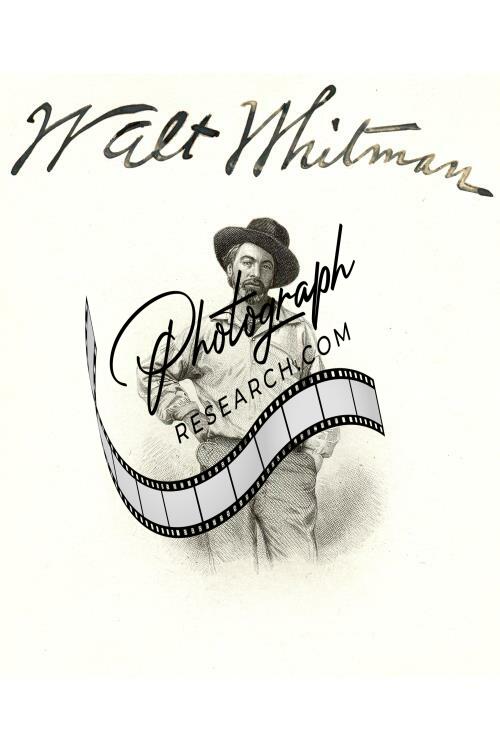 Walt Whitman
Photograph
RESEARCH.COM